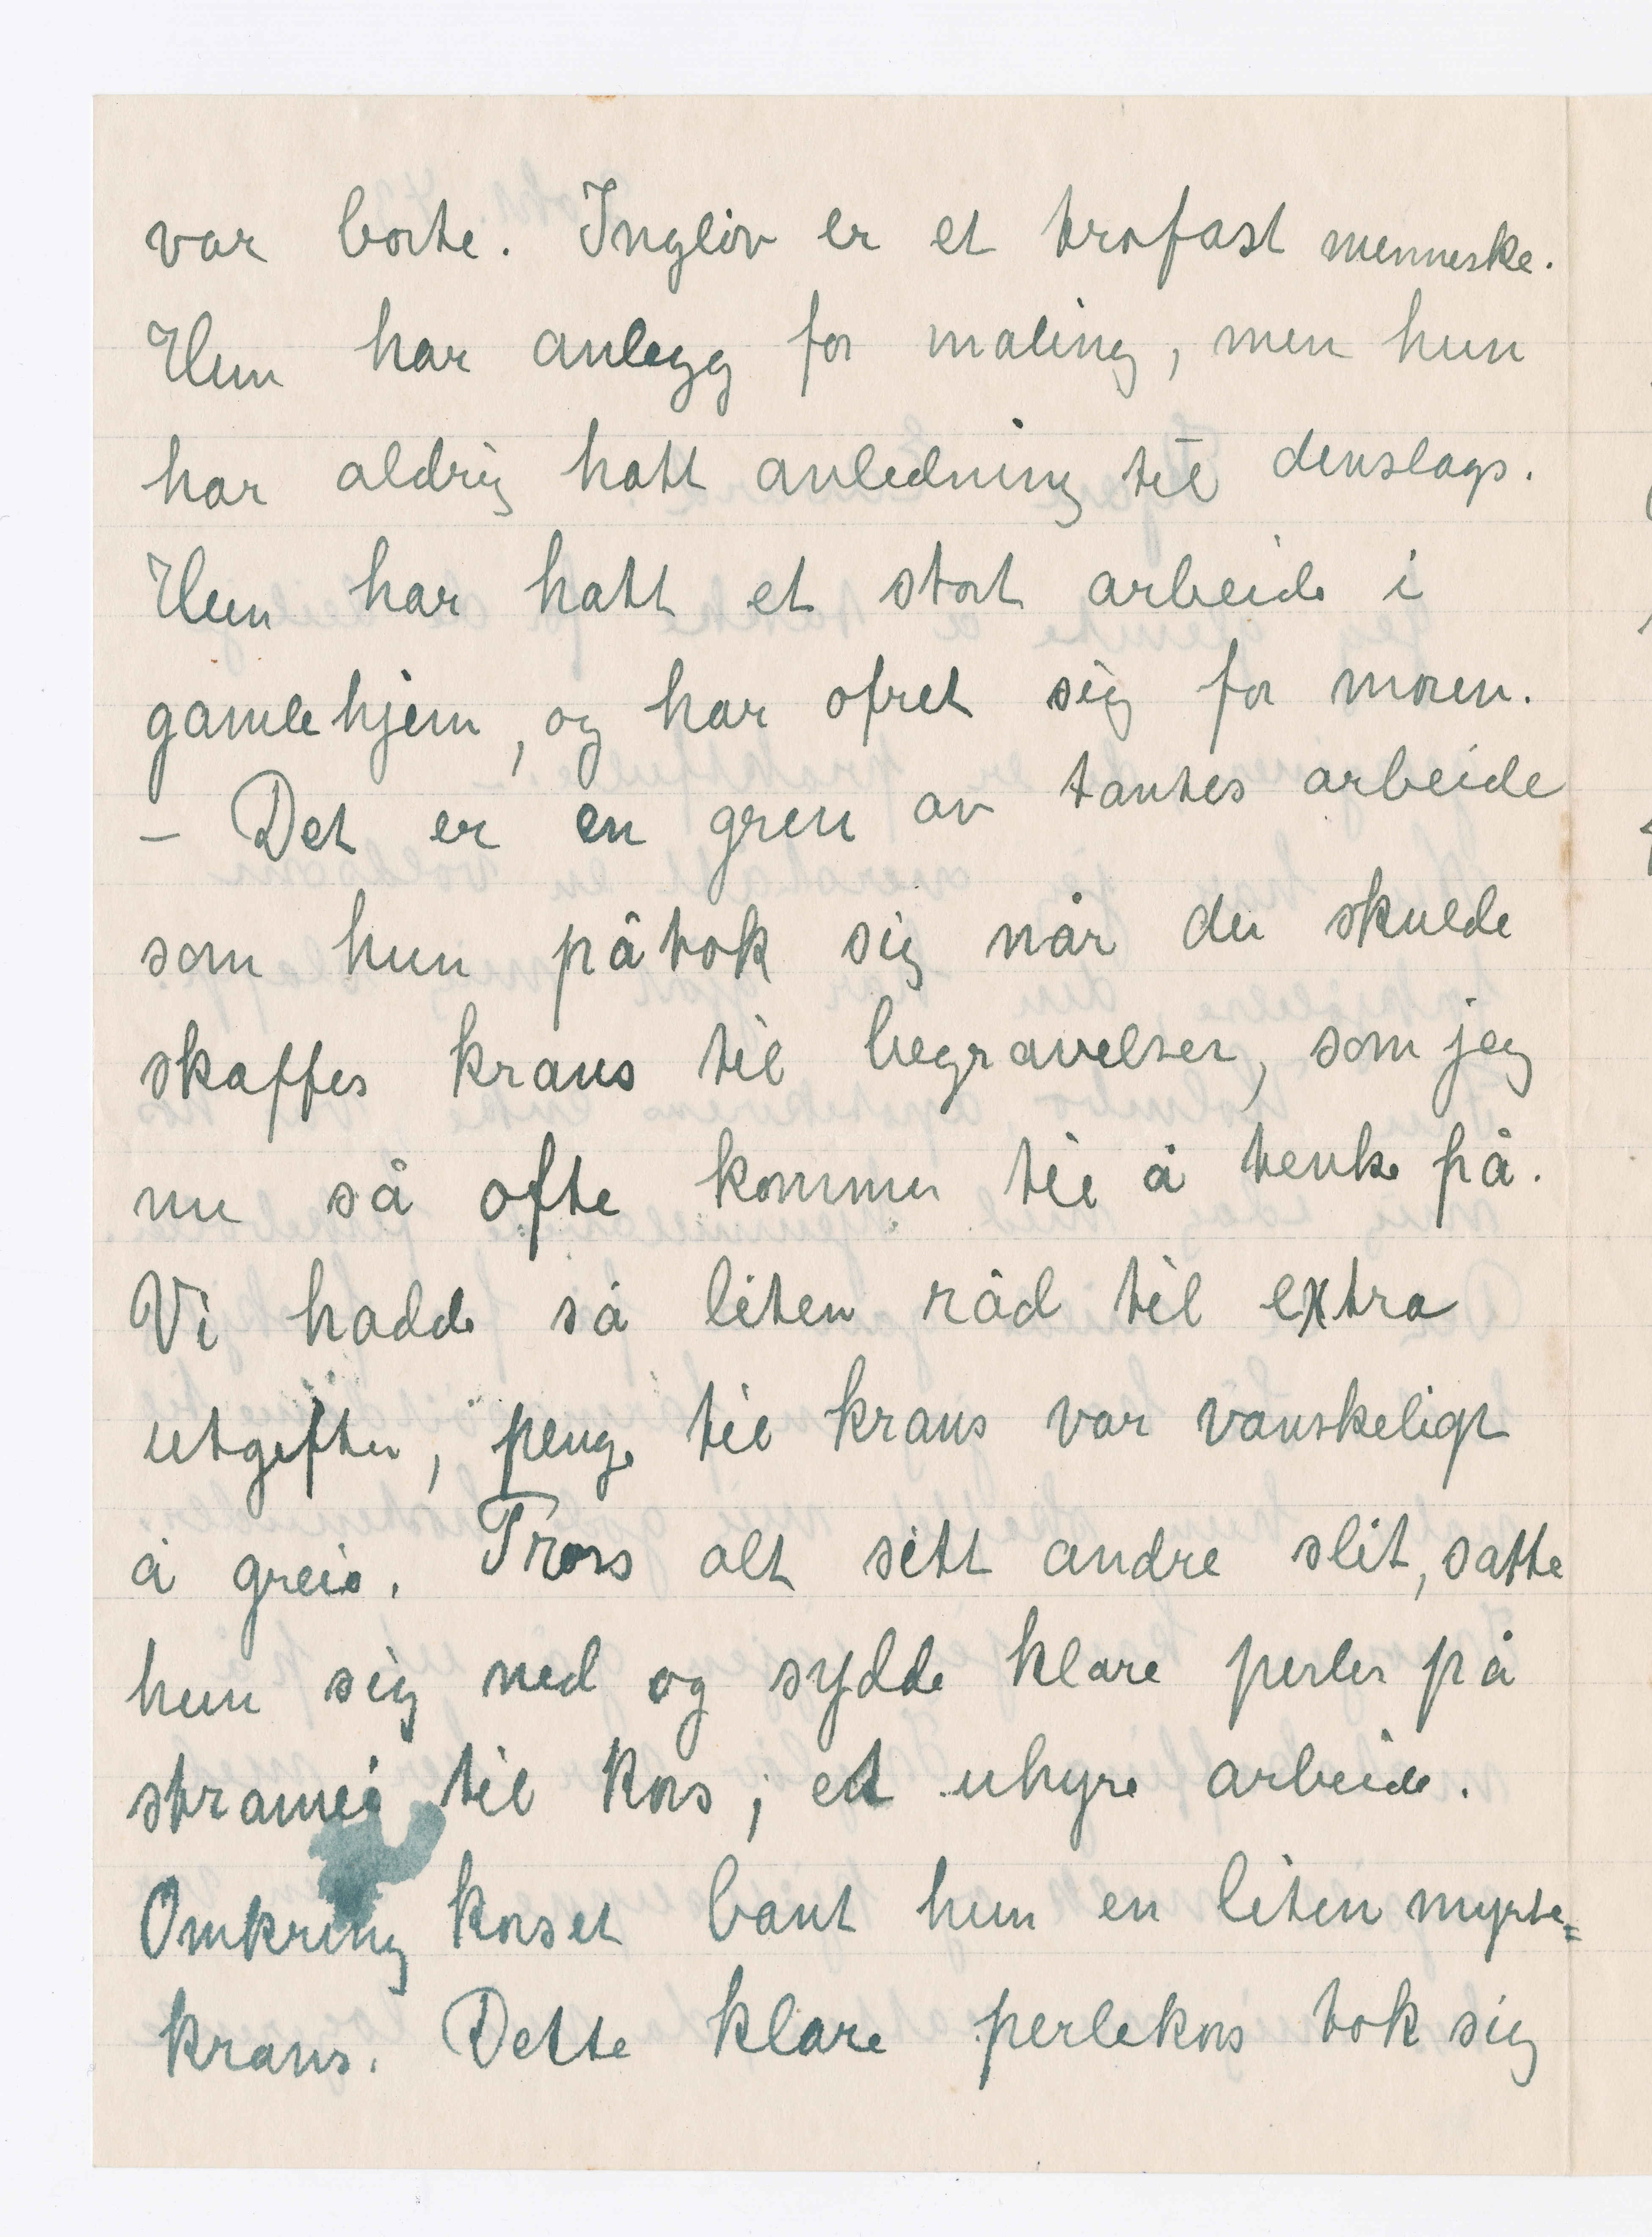 var borte. Ingliv er et trofast menneske.
Hun har anlegg for maling, men hun
har aldrig hatt anledning til denslags.
Hun har hatt et stort arbeide i
gamlehjem, og har ofret sig for moren.
– Det er en gren av tantes arbeide
som hun påtok sig når der skulde
skaffes krans til begravelser, som jeg
nu så ofte kommer til å tenke på.
Vi hadde så liten råd til extra
utgifter, penge til krans var vanskeligt
å greie. Tross alt sitt andre slit, satte
hun sig ned og sydde klare perler på
stramei til kors; et uhyre arbeide.
Omkring korset bant hun en liten myrte=
krans. Dette klare perlekors tok sig